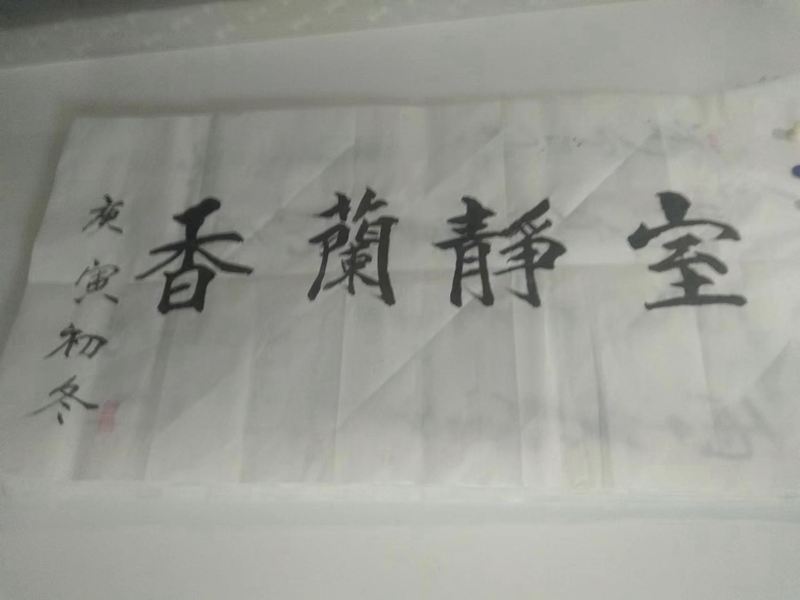 室靜蘭香
庚寅初冬